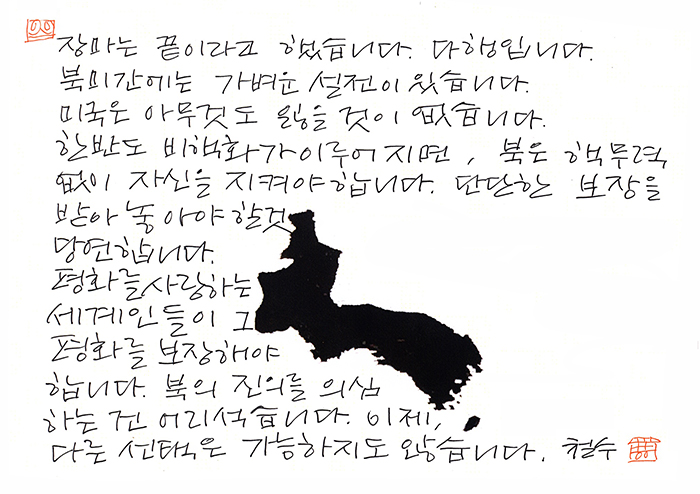 장마는 끝이라고 했습니다. 다행입니다.
북미간에는 가벼운 설전이 있습니다.
미국은 아무것도 잃을 것이 없습니다.
한반도 비핵화가 이루어지면, 북은 핵무력
없이 자신을 지켜야합니다. 단단한 보장을
받아 놓아야 할것
당연합니다.
평화를 사랑하는
세계인들이 그
평화를 보장해야
합니다. 북의 진의를 의심
하는 건 어리석습니다. 이제,
다른 선택은 가능하지도 않습니다. 철수